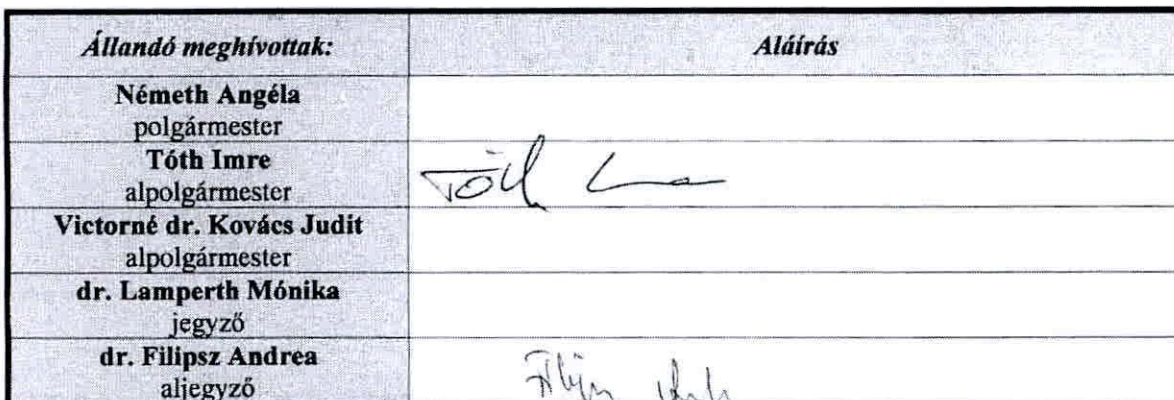 Állandó meghívottak: Aláírás
Németh Angéla
polgármester
Tóth Imre
alpolgármester
Tóth
Victorné dr. Kovács Judit
alpolgármester
dr. Lamperth Mónika
jegyző
dr. Filipsz Andrea
aljegyző